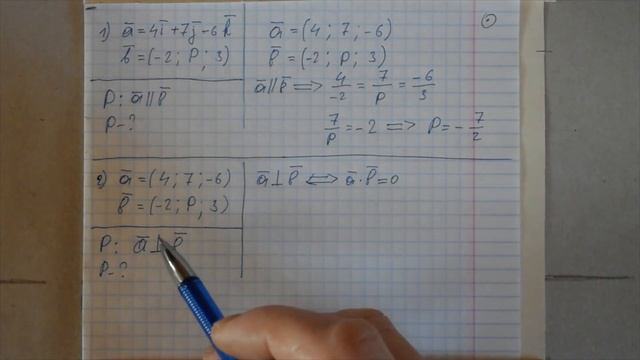 1) a̅ = 4i̅ + 7j̅ - 6k̅
b̅ = (-2; P; 3)
P: a̅ ∥ b̅
P - ?
a̅ = (4; 7; -6)
b̅ = (-2; P; 3)
a̅ ∥ b̅ ⟹ 4/-2 = 7/P = -6/3
7/P = -2 ⟹ P = -7/2
2) a̅ = (4; 7; -6)
b̅ = (-2; P; 3)
P: a̅ ⊥ b̅
P - ?
a̅ ⊥ b̅ ⟺ a̅ · b̅ = 0